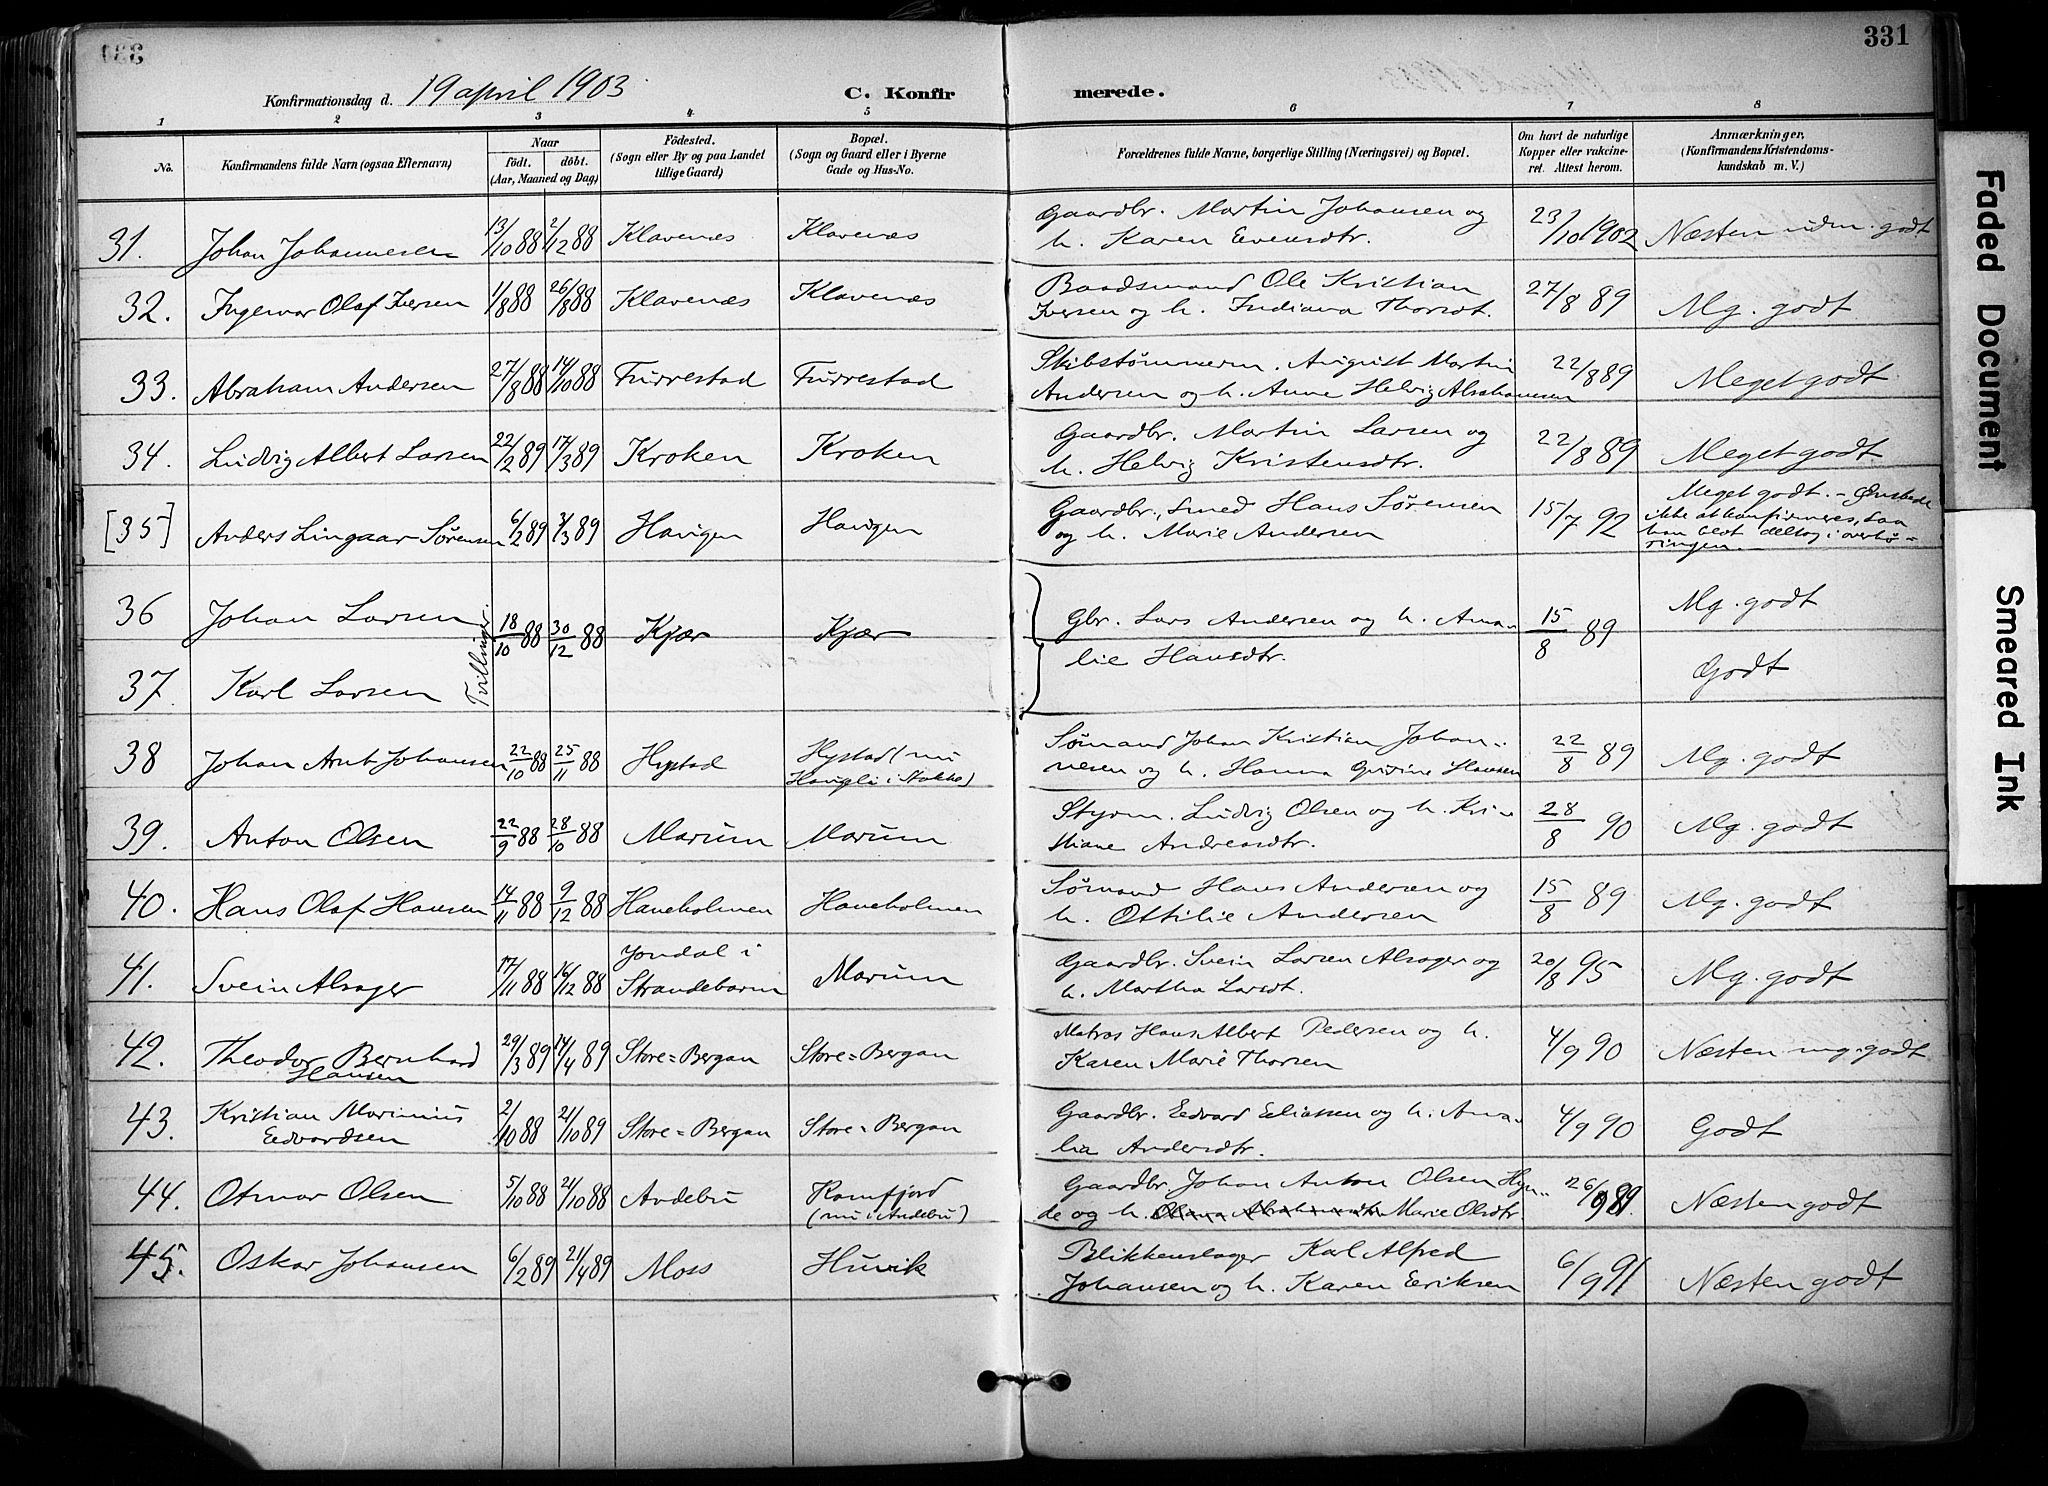 331
Konfirmationsdag d. 19 april 1903
C. Konfirmerede.
1 2 3 4 5 6 7 8
No.
Konfirmandens fulde Navn (ogsaa Efternavn)
Naar
födt. döbt.
(Aar, Maaned og Dag)
Födested.
(Sogn eller By og paa Landet
tillige Gaard)
Bopæl.
(Sogn og Gaard eller i Byerne
Gade og Hus-No.
Forældrenes fulde Navne, borgerlige Stilling (Næringsvei) og Bopæl.
Om havt de naturlige
Kopper eller vakcine-
ret. Attest herom.
Anmærkninger.
(Konfirmandens Kristendoms-
kundskab m. V.)
31. Johan Johannesen 13/10 88 2/12 88 Klavenæs Klavenæs Gaardbr. Martin Johansen og
h. Karen Evensdtr. 23/10 1902 Næsten udm. godt
32. Ingevar Olaf Iversen 1/8 88 26/8 88 Klavenæs Klavenæs Baadsmand Ole Kristian
Iversen og h. Indiana Thorsdt. 27/8 89 Mg. godt
33. Abraham Andersen 27/8 88 14/10 88 Furrestad Furrestad Skibstømmerm. August Martin
Andersen og h. Anne Helvig Abrahamsen 22/8 89 Meget godt
34. Ludvig Albert Larsen 22/2 89 17/3 89 Kroken Kroken Gaardbr. Martin Larsen og
h. Helvig Kristensdtr. 22/8 89 Meget godt
[35] Anders Lingaar Sørensen 6/2 89 3/3 89 Haugen Haugen Gaardbr., Smed Hans Sørensen
og h. Marie Andersen 15/7 92 Meget godt. – Ønskede
ikke at konfirmeres, saa
han blot deltog i overhø-
ringen.
36 Johan Larsen Tvillinger. 18/10 88 30/12 88 Kjær Kjær Gbr. Lars Andersen og h. Ama-
lie Hansdtr. 15/8 89 Mg. godt
37. Karl Larsen Godt
38 Johan Arnt Johansen 22/10 88 25/11 88 Hystad Hystad (nu
Haugli i Stokke) Sømand Johan Kristian Johan-
nesen og h. Hanna Hansen 22/8 89 Mg. godt
39. Anton Olsen 22/9 88 28/10 88 Marum Marum Styrm. Ludvig Olsen og h. Kri-
stiane Andreasdtr. 28/8 90 Mg. godt
40. Hans Olaf Hansen 14/11 88 9/12 88 Haneholmen Haneholmen Sømand Hans Andersen og
h. Ottilie Andersen 15/8 89 Mg. godt
41. Svein Alsager 17/11 88 16/12 88 Jondal i
Strandebarm Marum Gaardbr. Svein Larsen Alsager og
h. Martha Larsdt. 20/8 95 Mg. godt
42. Theodor Bernhard
Hansen 29/3 89 14/4 89 Store=Bergan Store=Bergan Matros Hans Albert Pedersen og h.
Karen Marie Thorsen 4/9 90 Næsten mg. godt
43. Kristian Marinius
Edvardsen 2/10 88 21/10 89 Store=Bergan Store=Bergan Gaardbr. Edvard Eliassen og h. Ama-
lia Andersdtr. 4/9 90 Godt
44. Otmar Olsen 5/10 88 21/10 88 Andebu Ramfjord
(nu i Andebu) Gaardbr. Johan Anton Olsen Hyn-
de og h. Marie Olsdtr. 26/9 89. Næsten godt
45. Oskar Johansen 6/2 89 21/4 89 Moss Huvik Blikkenslager Karl Alfred
Johansen og h. Karen Eriksen 6/9 91 Næsten godt
Faded Document
Smeared Ink